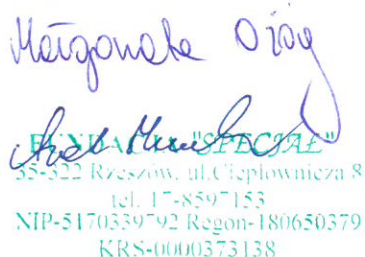 Małgorzata Ożóg
FUNDACJA "SPECJAŁ"
35-322 Rzeszów, ul.Ciepłownicza 8
tel. 17-8597153
NIP-5170339792 Regon-180650379
KRS-0000373138